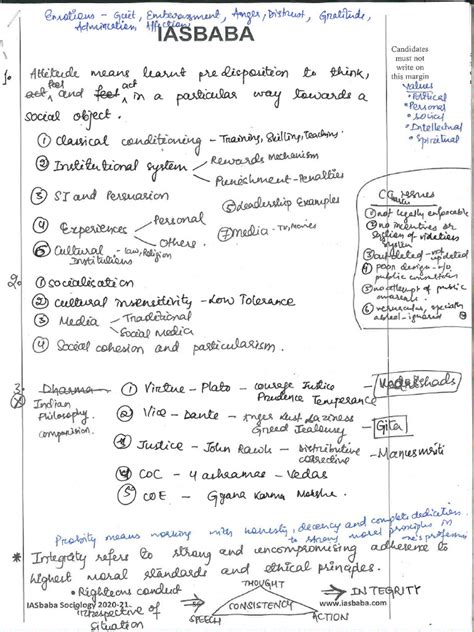 Emotions - Guilt, Embarrassment, Anger, Distrust, Gratitude,
Admiration, Affection
IASBABA
Candidates
must not
write on
this margin
Values
• Political
• Personal
• social
• Intellectual
• Spiritual
1. Attitude means learnt predisposition to think,
feel act
act, and feel in a particular way towards a
social object.
① Classical conditioning - Training, Skilling, Teaching
② Institutional system
Rewards Mechanism
Punishment - Penalties
③ SI and Persuasion
⑥ Leadership Examples
④ Experiences
Personal
Others.
⑦ Media - TV, Movies
⑤ Cultural - Law, Religion
Institutions
CC issues
① not legally enforceable
② no incentives or
system of violations
system
③ outdated - not updated
④ poor design - w/o
public consultation
⑤ no attempt of public
awareness
⑥ vernacular, specially
abled - ignored
2. ① socialisation
② cultural insensitivity - Low Tolerance
③ Media
Traditional
Social Media
④ Social cohesion and particularism.
3. Dharma
Indian
Philosophy
comparision.
① Virtue - Plato - courage Justice
Prudence Temperance
② Vice - Dante - Anger Lust Laziness
Greed Jealousy
Gita
③ Justice - John Rawls - Distributive
corrective
- Manusmriti
④ COC - 4 ashramas - Vedas
⑤ COE - Gyana Karma Moksha
Probity means working with honesty, decency and complete dedication
to strong moral principles in
one's profession
* Integrity refers to strong and uncompromising adherence to
highest moral standards and ethical principles.
• Righteous conduct
irrespective of
situation
THOUGHT
CONSISTENCY
SPEECH
ACTION
→ INTEGRITY
IASbaba Sociology 2020-21
www.iasbaba.com